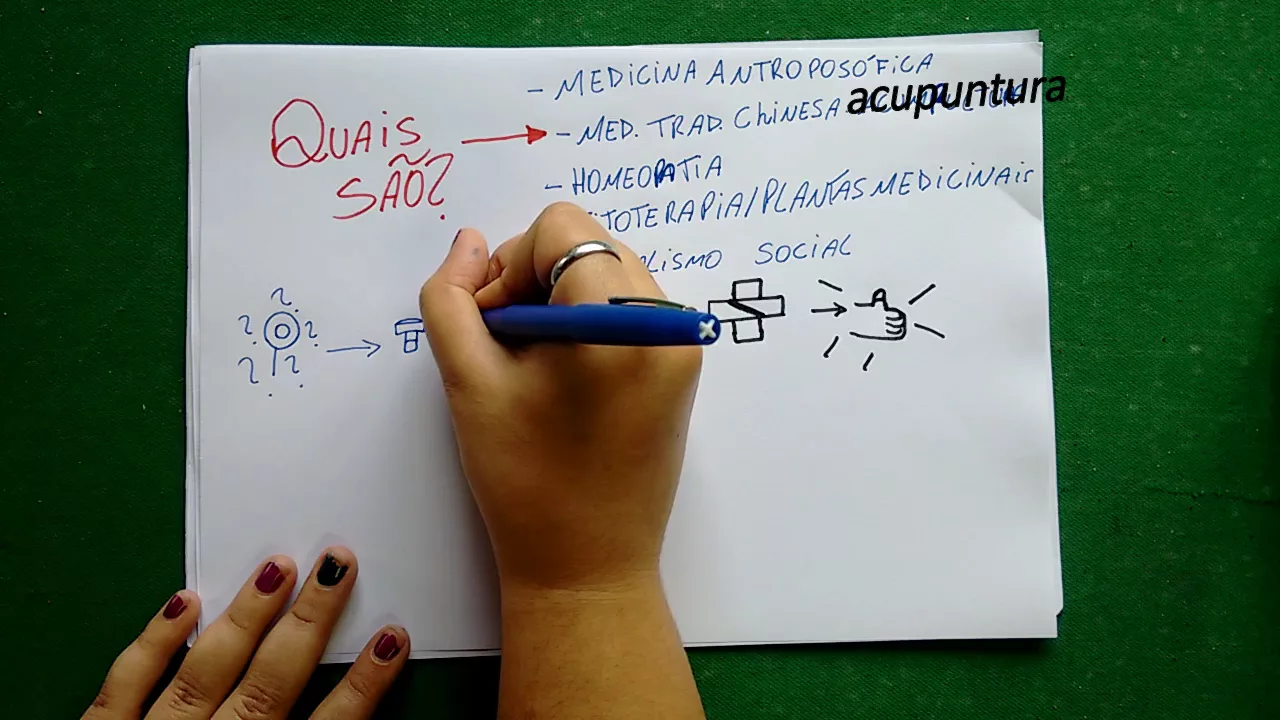 QUAIS
SÃO?
- MEDICINA ANTROPOSÓFICA
- MED. TRAD. CHINESA acupuntura
- HOMEOPATIA
ITOTERAPIA/PLANTAS MEDICINAIS
LISMO SOCIAL
? ? ? ? ?